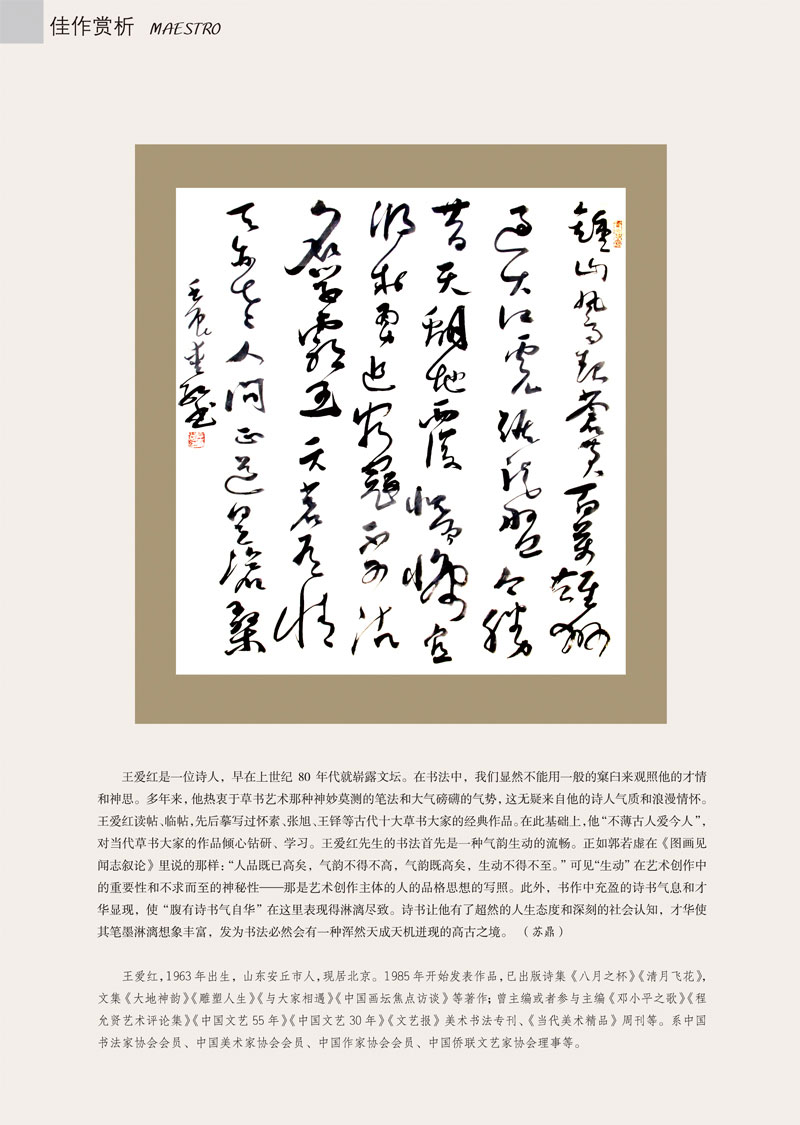 佳作赏析 MAESTRO
鍾山風雨起蒼黄百萬雄師
過大江虎踞龍盤今勝
昔天翻地覆慨而慷宜
將剩勇追窮寇不可沽
名學霸王天若有情
天亦老人间正道是滄桑
壬辰爱红书
王爱红是一位诗人，早在上世纪 80 年代就崭露文坛。在书法中，我们显然不能用一般的窠臼来观照他的才情
和神思。多年来，他热衷于草书艺术那种神妙莫测的笔法和大气磅礴的气势，这无疑来自他的诗人气质和浪漫情怀。
王爱红读帖、临帖，先后摹写过怀素、张旭、王铎等古代十大草书大家的经典作品。在此基础上，他“不薄古人爱今人”，
对当代草书大家的作品倾心钻研、学习。王爱红先生的书法首先是一种气韵生动的流畅。正如郭若虚在《图画见
闻志叙论》里说的那样：“人品既已高矣，气韵不得不高，气韵既高矣，生动不得不至。”可见“生动”在艺术创作中
的重要性和不求而至的神秘性——那是艺术创作主体的人的品格思想的写照。此外，书作中充盈的诗书气息和才
华显现，使“腹有诗书气自华”在这里表现得淋漓尽致。诗书让他有了超然的人生态度和深刻的社会认知，才华使
其笔墨淋漓想象丰富，发为书法必然会有一种浑然天成天机迸现的高古之境。（苏鼎）
王爱红，1963 年出生，山东安丘市人，现居北京。1985 年开始发表作品，已出版诗集《八月之杯》《清月飞花》，
文集《大地神韵》《雕塑人生》《与大家相遇》《中国画坛焦点访谈》等著作；曾主编或者参与主编《邓小平之歌》《程
允贤艺术评论集》《中国文艺 55 年》《中国文艺 30 年》《文艺报》美术书法专刊、《当代美术精品》周刊等。系中国
书法家协会会员、中国美术家协会会员、中国作家协会会员、中国侨联文艺家协会理事等。